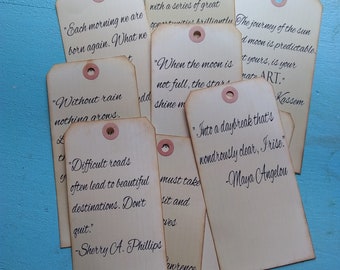 "Each morning we are
born again. What we
with a series of great
opportunities brilliantly
"The journey of the sun
and moon is predictable.
yours, is your
ART."
Kassem
"When the moon is
not full, the stars
shine m
"Without rain
nothing grows.
"Into a daybreak that's
wondrously clear, I rise."
-Maya Angelou
"Difficult roads
often lead to beautiful
destinations. Don't
quit."
-Sherry A. Phillips
must take
sit and